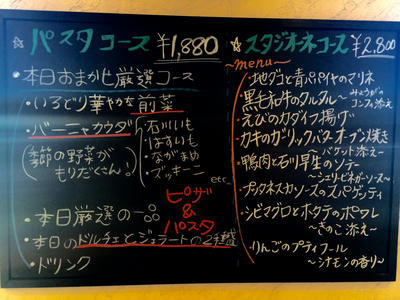 ☆パスタコース ¥1,880
・本日おまかせ厳選コース
・いろどり華やかな前菜
・バーニャカウダ
(季節の野菜がもりだくさん。)
・石川いも
・はすいも
・ながまめ
・ズッキーニ
etc
ピザ
&
パスタ
・本日厳選の一品
・本日のドルチェとジェラートの2種盛
・ドリンク
☆スタジオーネコース ¥2.800
~menu~
・地ダコと青パパイヤのマリネ
・黒毛和牛のタルタル~みょうがのコンフィ添え
・えびのカダイフ揚げ
・カキのガリックバターオーブン焼き
~バケット添え~
・鴨肉と石川早生のソテー
~シェリービネガーソース~
・プッタネスカソースのスパゲッティ
・シビマグロとホタテのポワレ
~きのこ添え~
・りんごのプティフール
~シナモンの香り~